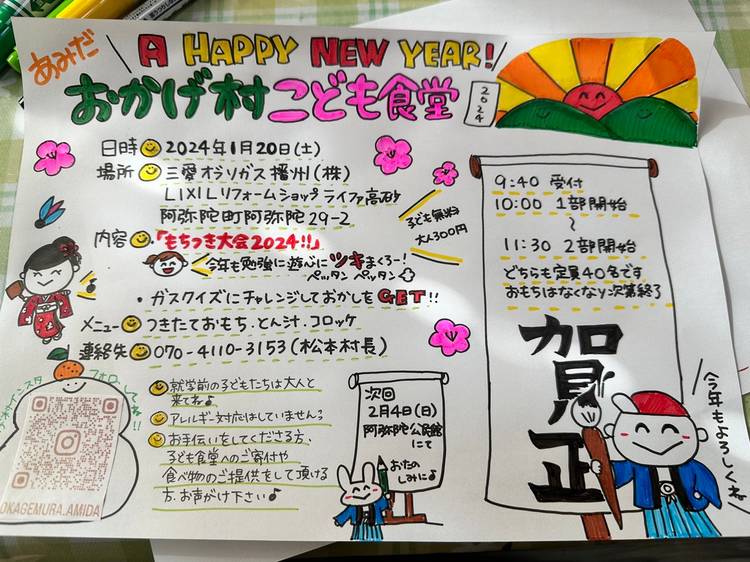 あみだ
A HAPPY NEW YEAR!
おかげ村こども食堂
2024
日時 2024年1月20日(土)
場所 三愛オブリガス播州(株)
LIXILリフォームショップライファ高砂
阿弥陀町阿弥陀29-2
子ども無料
大人300円
内容 「もちつき大会2024!!」
今年も勉強に遊心にツキまくろー!
ペッタン ペッタン
・ガスクイズにチャレンジしておかしをGET!!
メニュー つきたておもち・とん汁・コロッケ
連絡先 070-4110-3153(松本村長)
フォローしてね!!
OKAGEMURA.AMIDA
就学前の子どもたちは大人と
来てね♪
アレルギー対応はしていません?
お手伝いをしてくださる方、
子ども食堂へのご寄付や
食べ物のご提供をして頂ける
方、お声がけ下さい♪
次回
2月4日(日)
阿弥陀公民館
にて
おたの
しみによ
9:40 受付
10:00 1部開始
~
11:30 2部開始
どちらも定員40名です
おもちはなくなり次第終了
賀正
今年もよろしくね